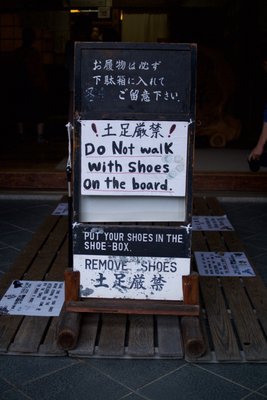 お履物は必ず
下駄箱に入れて
ご留意下さい.
! 土足厳禁 !
Do Not walk
with Shoes
on the board.
PUT YOUR SHOES IN THE
SHOE-BOX.
REMOVE SHOES
土足厳禁